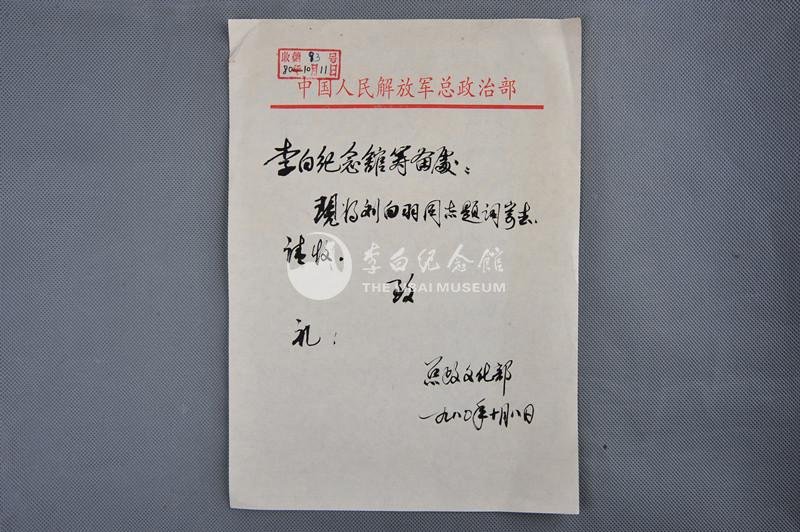 收 83 号
80年10月11日
中国人民解放军总政治部
李白纪念館筹备处：
現将刘白羽同志题词寄去，
请收。
致
礼！
总政文化部
一九八〇年十月八日
李白纪念館
THE LIBAI MUSEUM